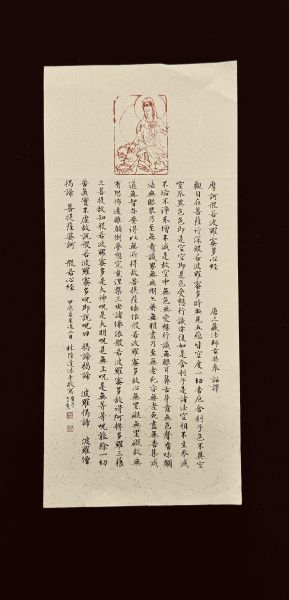 摩訶般若波羅蜜多心經 唐三藏法師玄奘奉 詔譯
觀自在菩薩行深般若波羅蜜多時照見五蘊皆空度一切苦厄舍利子色不異空
空不異色色即是空空即是色受想行識亦復如是舍利子是諸法空相不生不滅
不垢不淨不增不減是故空中無色無受想行識無眼耳鼻舌身意無色聲香味觸
法無眼界乃至無意識界無無明亦無無明盡乃至無老死亦無老死盡無苦集滅
道無智亦無得以無所得故菩提薩埵依般若波羅蜜多故心無罣礙無罣礙故無
有恐怖遠離顛倒夢想究竟涅槃三世諸佛依般若波羅蜜多故得阿耨多羅三藐
三菩提故知般若波羅蜜多是大神呪是大明呪是無上呪是無等等呪能除一切
苦真實不虛故說般若波羅蜜多呪即說呪曰 揭諦揭諦 波羅揭諦 波羅僧
揭諦 菩提薩婆訶 般若心經 甲辰